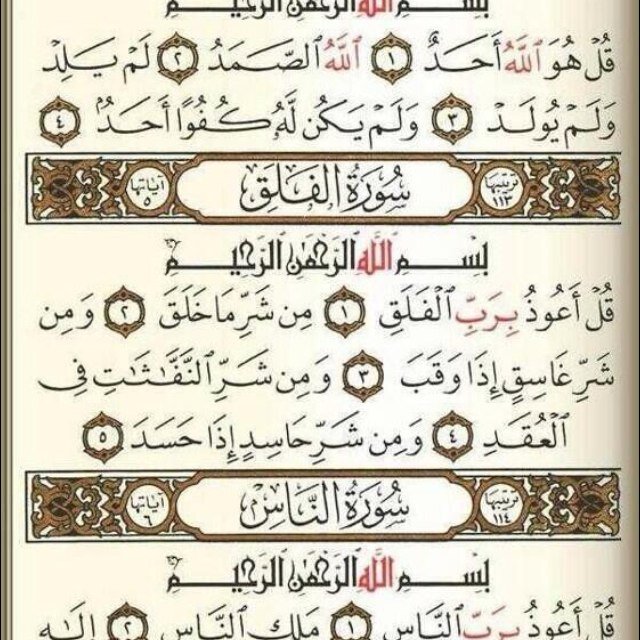 بِسْمِ ٱللَّهِ ٱلرَّحْمَٰنِ ٱلرَّحِيمِ
قُلْ هُوَ ٱللَّهُ أَحَدٌ ١ ٱللَّهُ ٱلصَّمَدُ ٢ لَمْ يَلِدْ
وَلَمْ يُولَدْ ٣ وَلَمْ يَكُن لَّهُۥ كُفُوًا أَحَدٌۢ ٤
ترتيبها ١١٣ سُورَةُ الْفَلَقِ آياتها ٥
بِسْمِ ٱللَّهِ ٱلرَّحْمَٰنِ ٱلرَّحِيمِ
قُلْ أَعُوذُ بِرَبِّ ٱلْفَلَقِ ١ مِن شَرِّ مَا خَلَقَ ٢ وَمِن
شَرِّ غَاسِقٍ إِذَا وَقَبَ ٣ وَمِن شَرِّ ٱلنَّفَّٰثَٰتِ فِى
ٱلْعُقَدِ ٤ وَمِن شَرِّ حَاسِدٍ إِذَا حَسَدَ ٥
ترتيبها ١١٤ سُورَةُ النَّاسِ آياتها ٦
بِسْمِ ٱللَّهِ ٱلرَّحْمَٰنِ ٱلرَّحِيمِ
قُلْ أَعُوذُ بِرَبِّ ٱلنَّاسِ ١ مَلِكِ ٱلنَّاسِ ٢ إِلَٰهِ